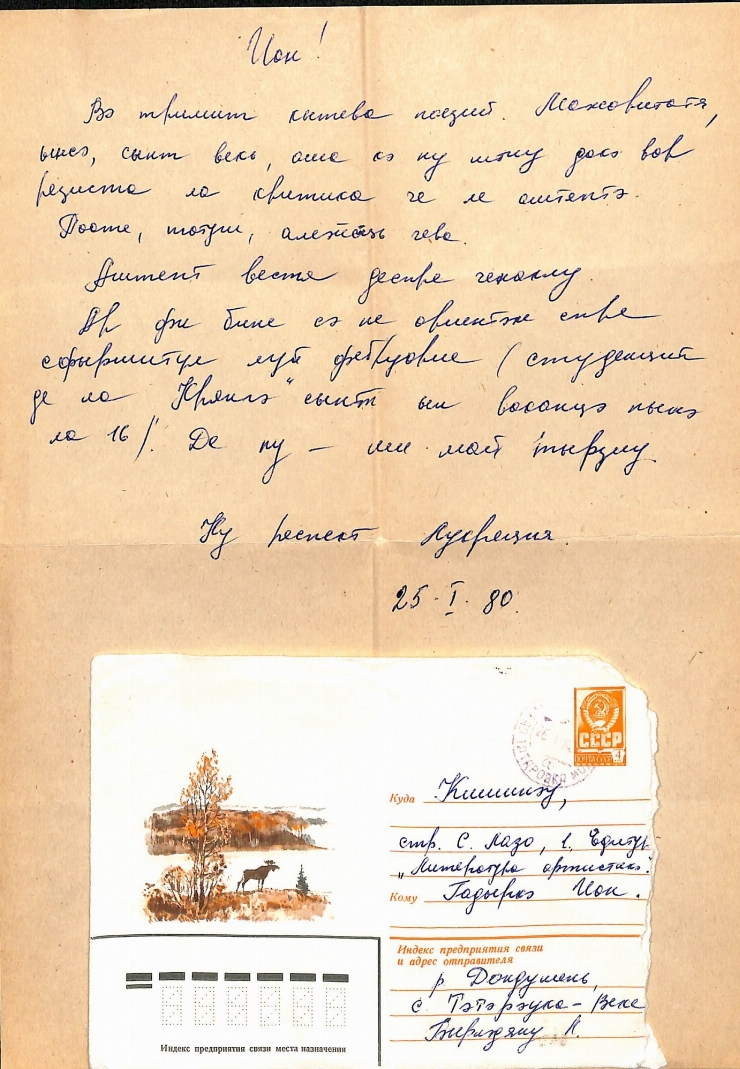 Ион!
Вэ тримит кытева поезий. Мажоритатя,
ынсэ, сынт векь, аша кэ ну штиу дакэ вор
резиста ла критика че ле аштептэ.
Поате, тотуши, алежець чева.
Аштепт вестя деспре ченаклу.
Ар фи бине сэ не ориентэм спре
сфыршитул луй февруарие (студенций
де ла "Крянгэ" сынт ын ваканцэ пынэ
ла 16). Де ну — ши май тырзиу.
Ку респект Лукреция
25. I. 80.
СССР
ПОЧТА СССР
4
Куда Кишинэу,
стр. С. Лазо, 1, Едитура
„Литература артистикэ".
Кому Гадыркэ Ион.
Индекс предприятия связи
и адрес отправителя
р. Дондушень,
с. Тэтэрэука-Веке
Бырлэдяну Л.
Индекс предприятия связи места назначения